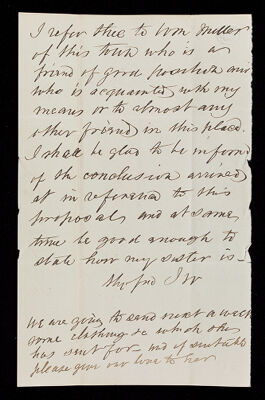 I refer thee to Wm Mellor
of this town who is a
friend of good position and
who is acquainted with my
means or to almost any
other friend in this place.
I shall be glad to be informd
of the conclusion arrived
at in reference to this
proposals and at same
time be good enough to
state how my sister is –
Thy frd J W
We are going to send next a week
some clothing &c which she
has sent for – and if suitable
please give our love to her